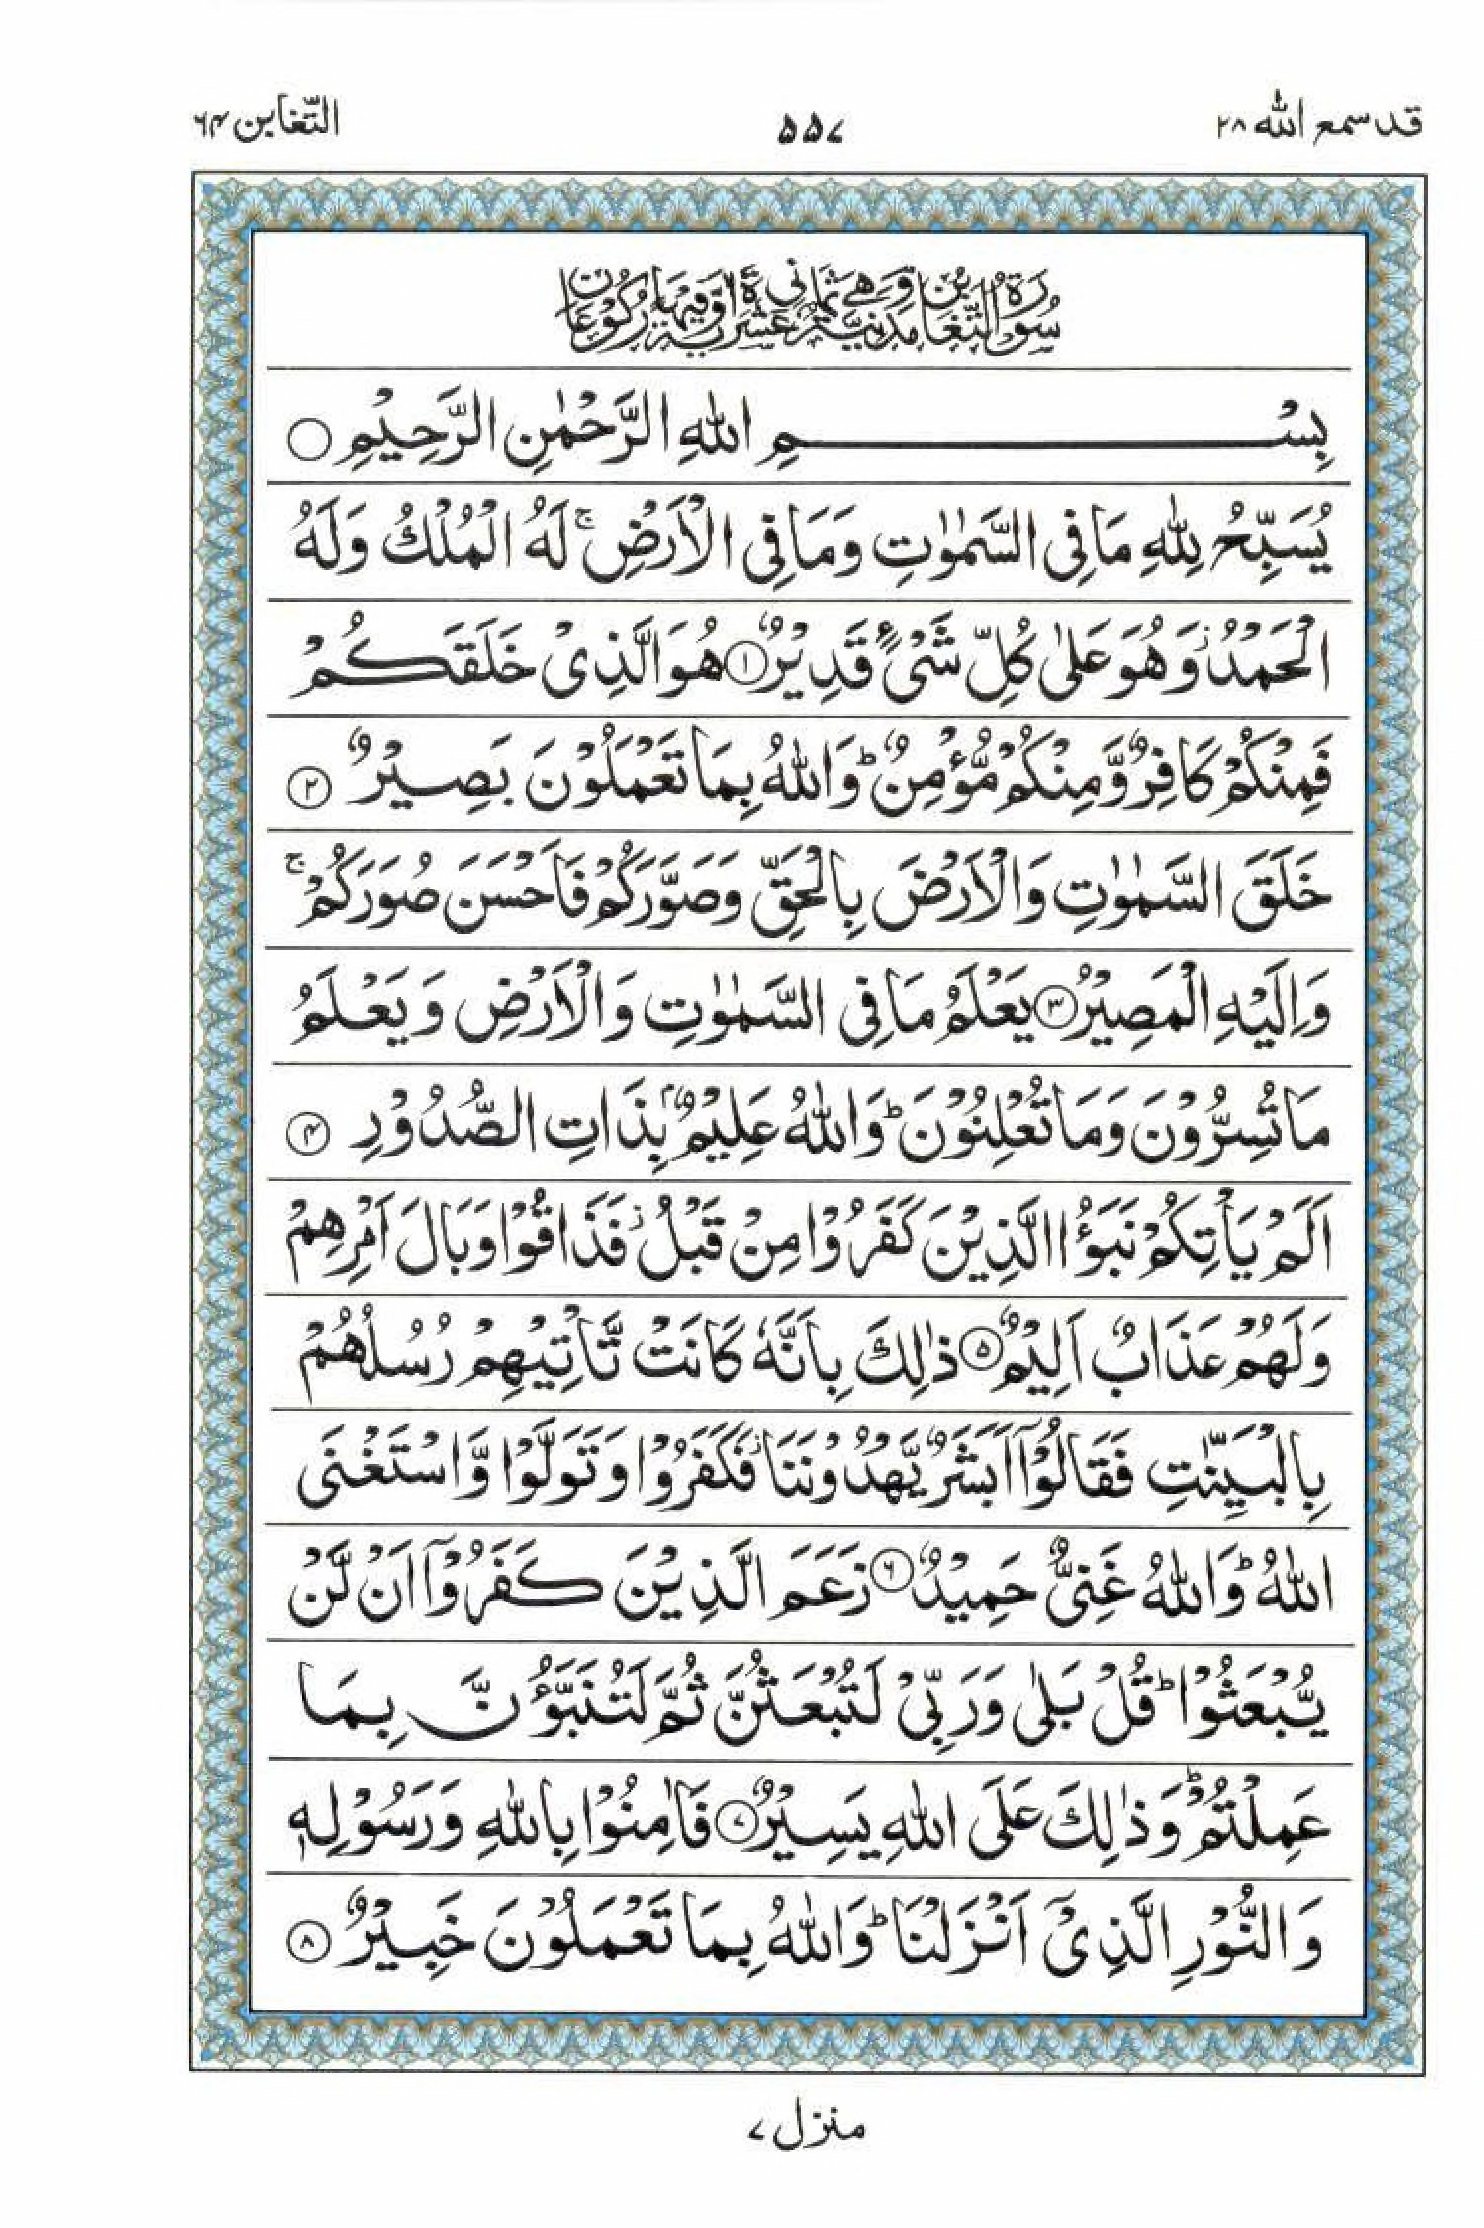 قد سمع الله ٢٨
٥٥٧
التّغابن ٦٤
سُوْرَةُ التَّغَابُنِ مَدَنِيَّةٌ وَّهِيَ ثَمَانِيْ عَشْرَةَ اٰيَةً وَّفِيْهَا رُكُوْعَانِ
بِسْمِ اللّٰهِ الرَّحْمٰنِ الرَّحِيْمِ ○
يُسَبِّحُ لِلّٰهِ مَا فِى السَّمٰوٰتِ وَمَا فِى الْاَرْضِ ۚ لَهُ الْمُلْكُ وَلَهُ
الْحَمْدُ ۡ وَهُوَ عَلٰى كُلِّ شَىْءٍ قَدِيْرٌ ① هُوَ الَّذِىْ خَلَقَكُمْ
فَمِنْكُمْ كَافِرٌ وَّمِنْكُمْ مُّؤْمِنٌ ؕ وَاللّٰهُ بِمَا تَعْمَلُوْنَ بَصِيْرٌ ②
خَلَقَ السَّمٰوٰتِ وَالْاَرْضَ بِالْحَقِّ وَصَوَّرَكُمْ فَاَحْسَنَ صُوَرَكُمْ ۚ
وَاِلَيْهِ الْمَصِيْرُ ③ يَعْلَمُ مَا فِى السَّمٰوٰتِ وَالْاَرْضِ وَيَعْلَمُ
مَا تُسِرُّوْنَ وَمَا تُعْلِنُوْنَ ؕ وَاللّٰهُ عَلِيْمٌۢ بِذَاتِ الصُّدُوْرِ ④
اَلَمْ يَاْتِكُمْ نَبَؤُا الَّذِيْنَ كَفَرُوْا مِنْ قَبْلُ ۡ فَذَاقُوْا وَبَالَ اَمْرِهِمْ
وَلَهُمْ عَذَابٌ اَلِيْمٌ ⑤ ذٰلِكَ بِاَنَّهٗ كَانَتْ تَّاْتِيْهِمْ رُسُلُهُمْ
بِالْبَيِّنٰتِ فَقَالُوْۤا اَبَشَرٌ يَّهْدُوْنَنَا ۡ فَكَفَرُوْا وَتَوَلَّوْا وَّاسْتَغْنَى
اللّٰهُ ؕ وَاللّٰهُ غَنِىٌّ حَمِيْدٌ ⑥ زَعَمَ الَّذِيْنَ كَفَرُوْۤا اَنْ لَّنْ
يُّبْعَثُوْا ؕ قُلْ بَلٰى وَرَبِّىْ لَتُبْعَثُنَّ ثُمَّ لَتُنَبَّؤُنَّ بِمَا
عَمِلْتُمْ ؕ وَذٰلِكَ عَلَى اللّٰهِ يَسِيْرٌ ⑦ فَاٰمِنُوْا بِاللّٰهِ وَرَسُوْلِهٖ
وَالنُّوْرِ الَّذِىْۤ اَنْزَلْنَا ؕ وَاللّٰهُ بِمَا تَعْمَلُوْنَ خَبِيْرٌ ⑧
منزل ٧